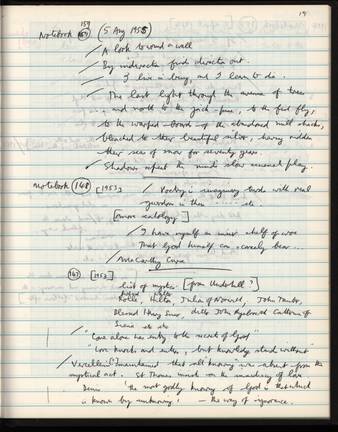 19
159
Notebook (5 Aug 1958
/ A look round a wall
/ By indirection find direction out.
/ I live in being, and I learn to do.
/ The last light through the avenue of trees
and north to the jack-pine, to the
to the warped boards of the abandoned mill shacks,
bleached to their beautiful silver, having ridden
their seas of snow for seventy years.
/ Shadows repeat the mind's slow play.
Notebook 148 [1953]
/ Poetry is imaginary toads with real
gardens in them
[more scatology]
/ I have myself an inner of woe
That God himself can scarcely bear
/ McCarthy
147 [1952]
list of mystics [from Underhill?]
Richard Walter
Rolle, Hilton, Julian of Norwich, John Tauler,
Blessed Henry Suso, John Ruysbroeck Catherine of
Siena etc etc
"Love alone has entry to the secrets of God"
"Love knocks and enters, but knowledge stands without"
/ Vercellensis maintained that all knowing was absent from the
mystical act. St Thomas
Denis 'the most godly knowing of God is that which
is known by unknowing' — the way of ignorance.